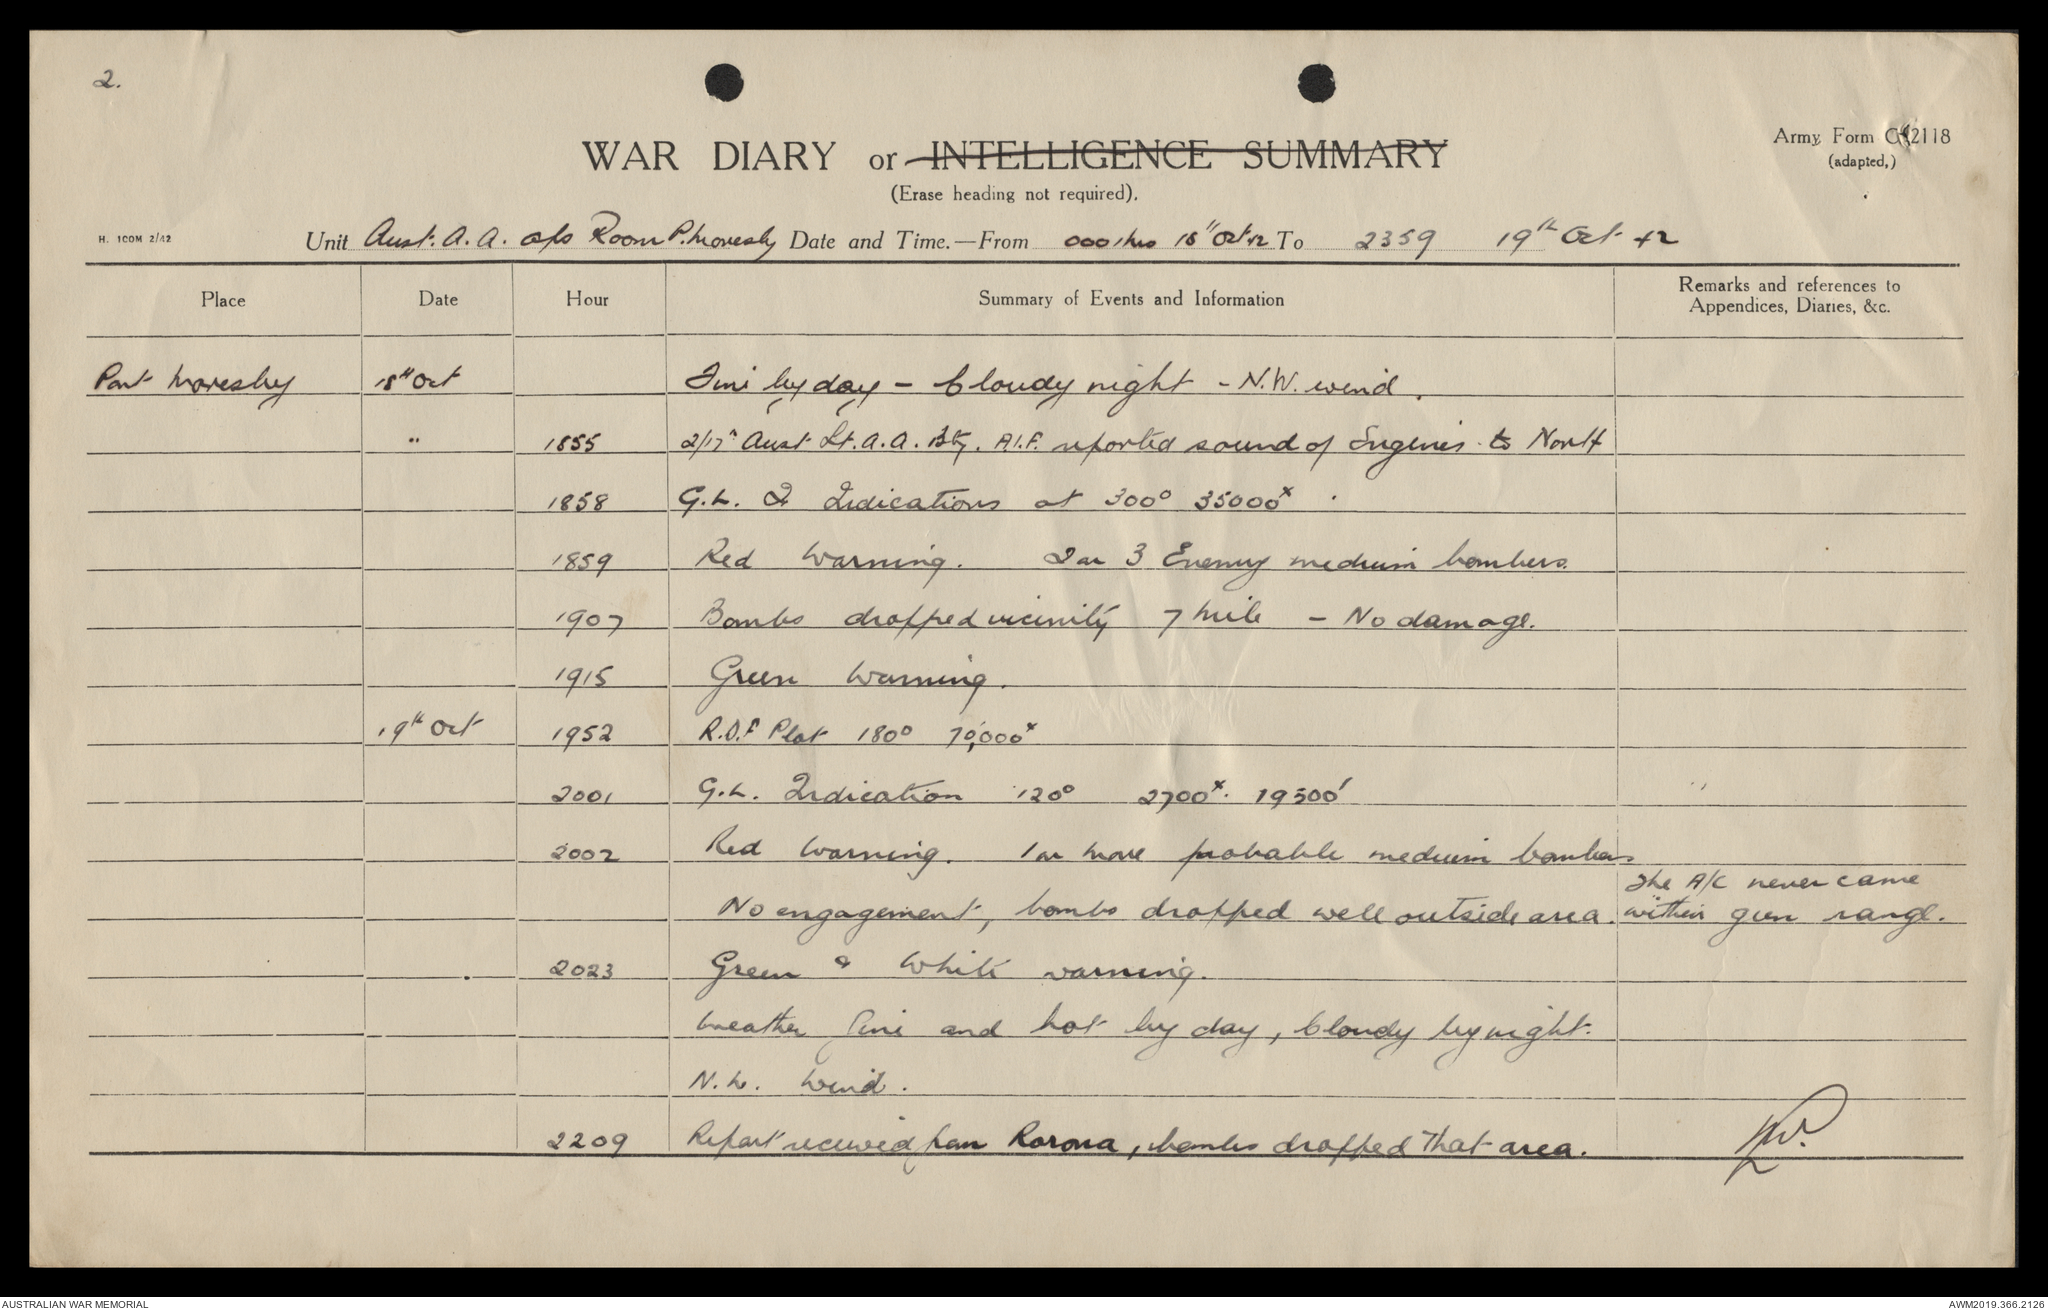 2.
WAR DIARY or INTELLIGENCE SUMMARY
(Erase heading not required).
Army Form C 2118
(adapted,)
H. 1COM 2/42
Unit Aust. A. A. o/s Room P. Moresby Date and Time.—From 0001hrs 18th Oct 42 To 2359 19th Oct 42
Place Date Hour Summary of Events and Information Remarks and references to
Appendices, Diaries, &c.
Port Moresby 18th Oct Fine by day - Cloudy night - N.W. wind.
" 1855 2/17th Aust Lt. A.A. Bty. A.I.F. reported sound of Engines to North
1858 G.L. 2 Indications at 300° 35000x
1859 Red Warning. 2 or 3 Enemy medium bombers.
1907 Bombs dropped vicinity 7 Mile - No damage.
1915 Green Warning.
19th Oct 1952 R.D.F Plot 180° 70,000x
2001 G.L. Indication 120° 2700x. 19500'
2002 Red Warning. 1 or more probable medium bombers
No engagement, bombs dropped well outside area. The A/C never came
within gun range.
2023 Green & White warning.
Weather fine and hot by day, Cloudy by night.
N.W. Wind.
2209 Report received from Rorona, bombs dropped that area.
AUSTRALIAN WAR MEMORIAL
AWM2019.366.2126